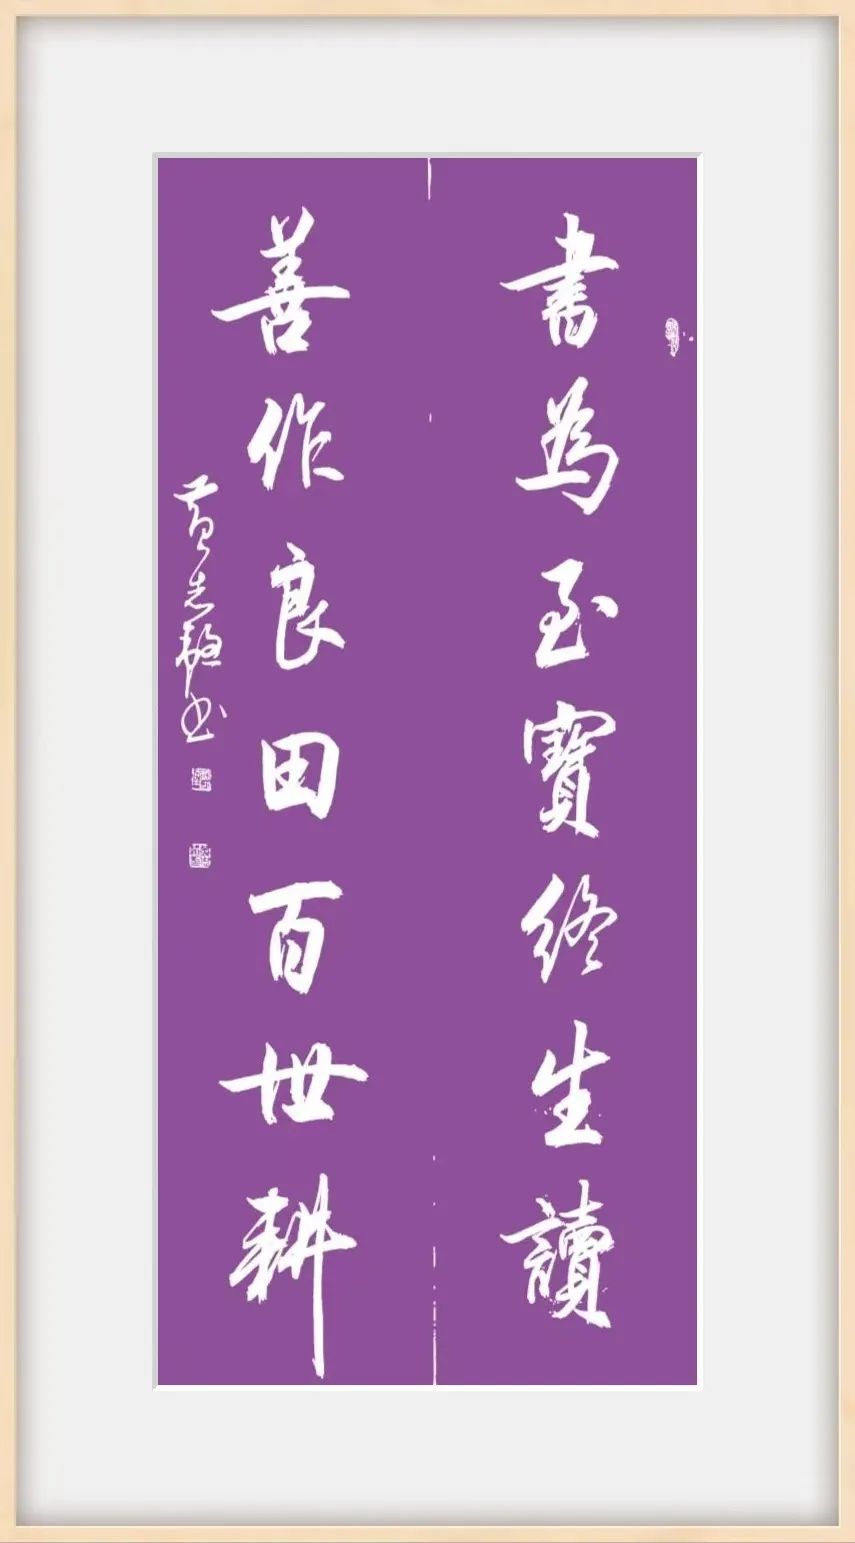 書為至寶終生讀
善作良田百世耕
黄志